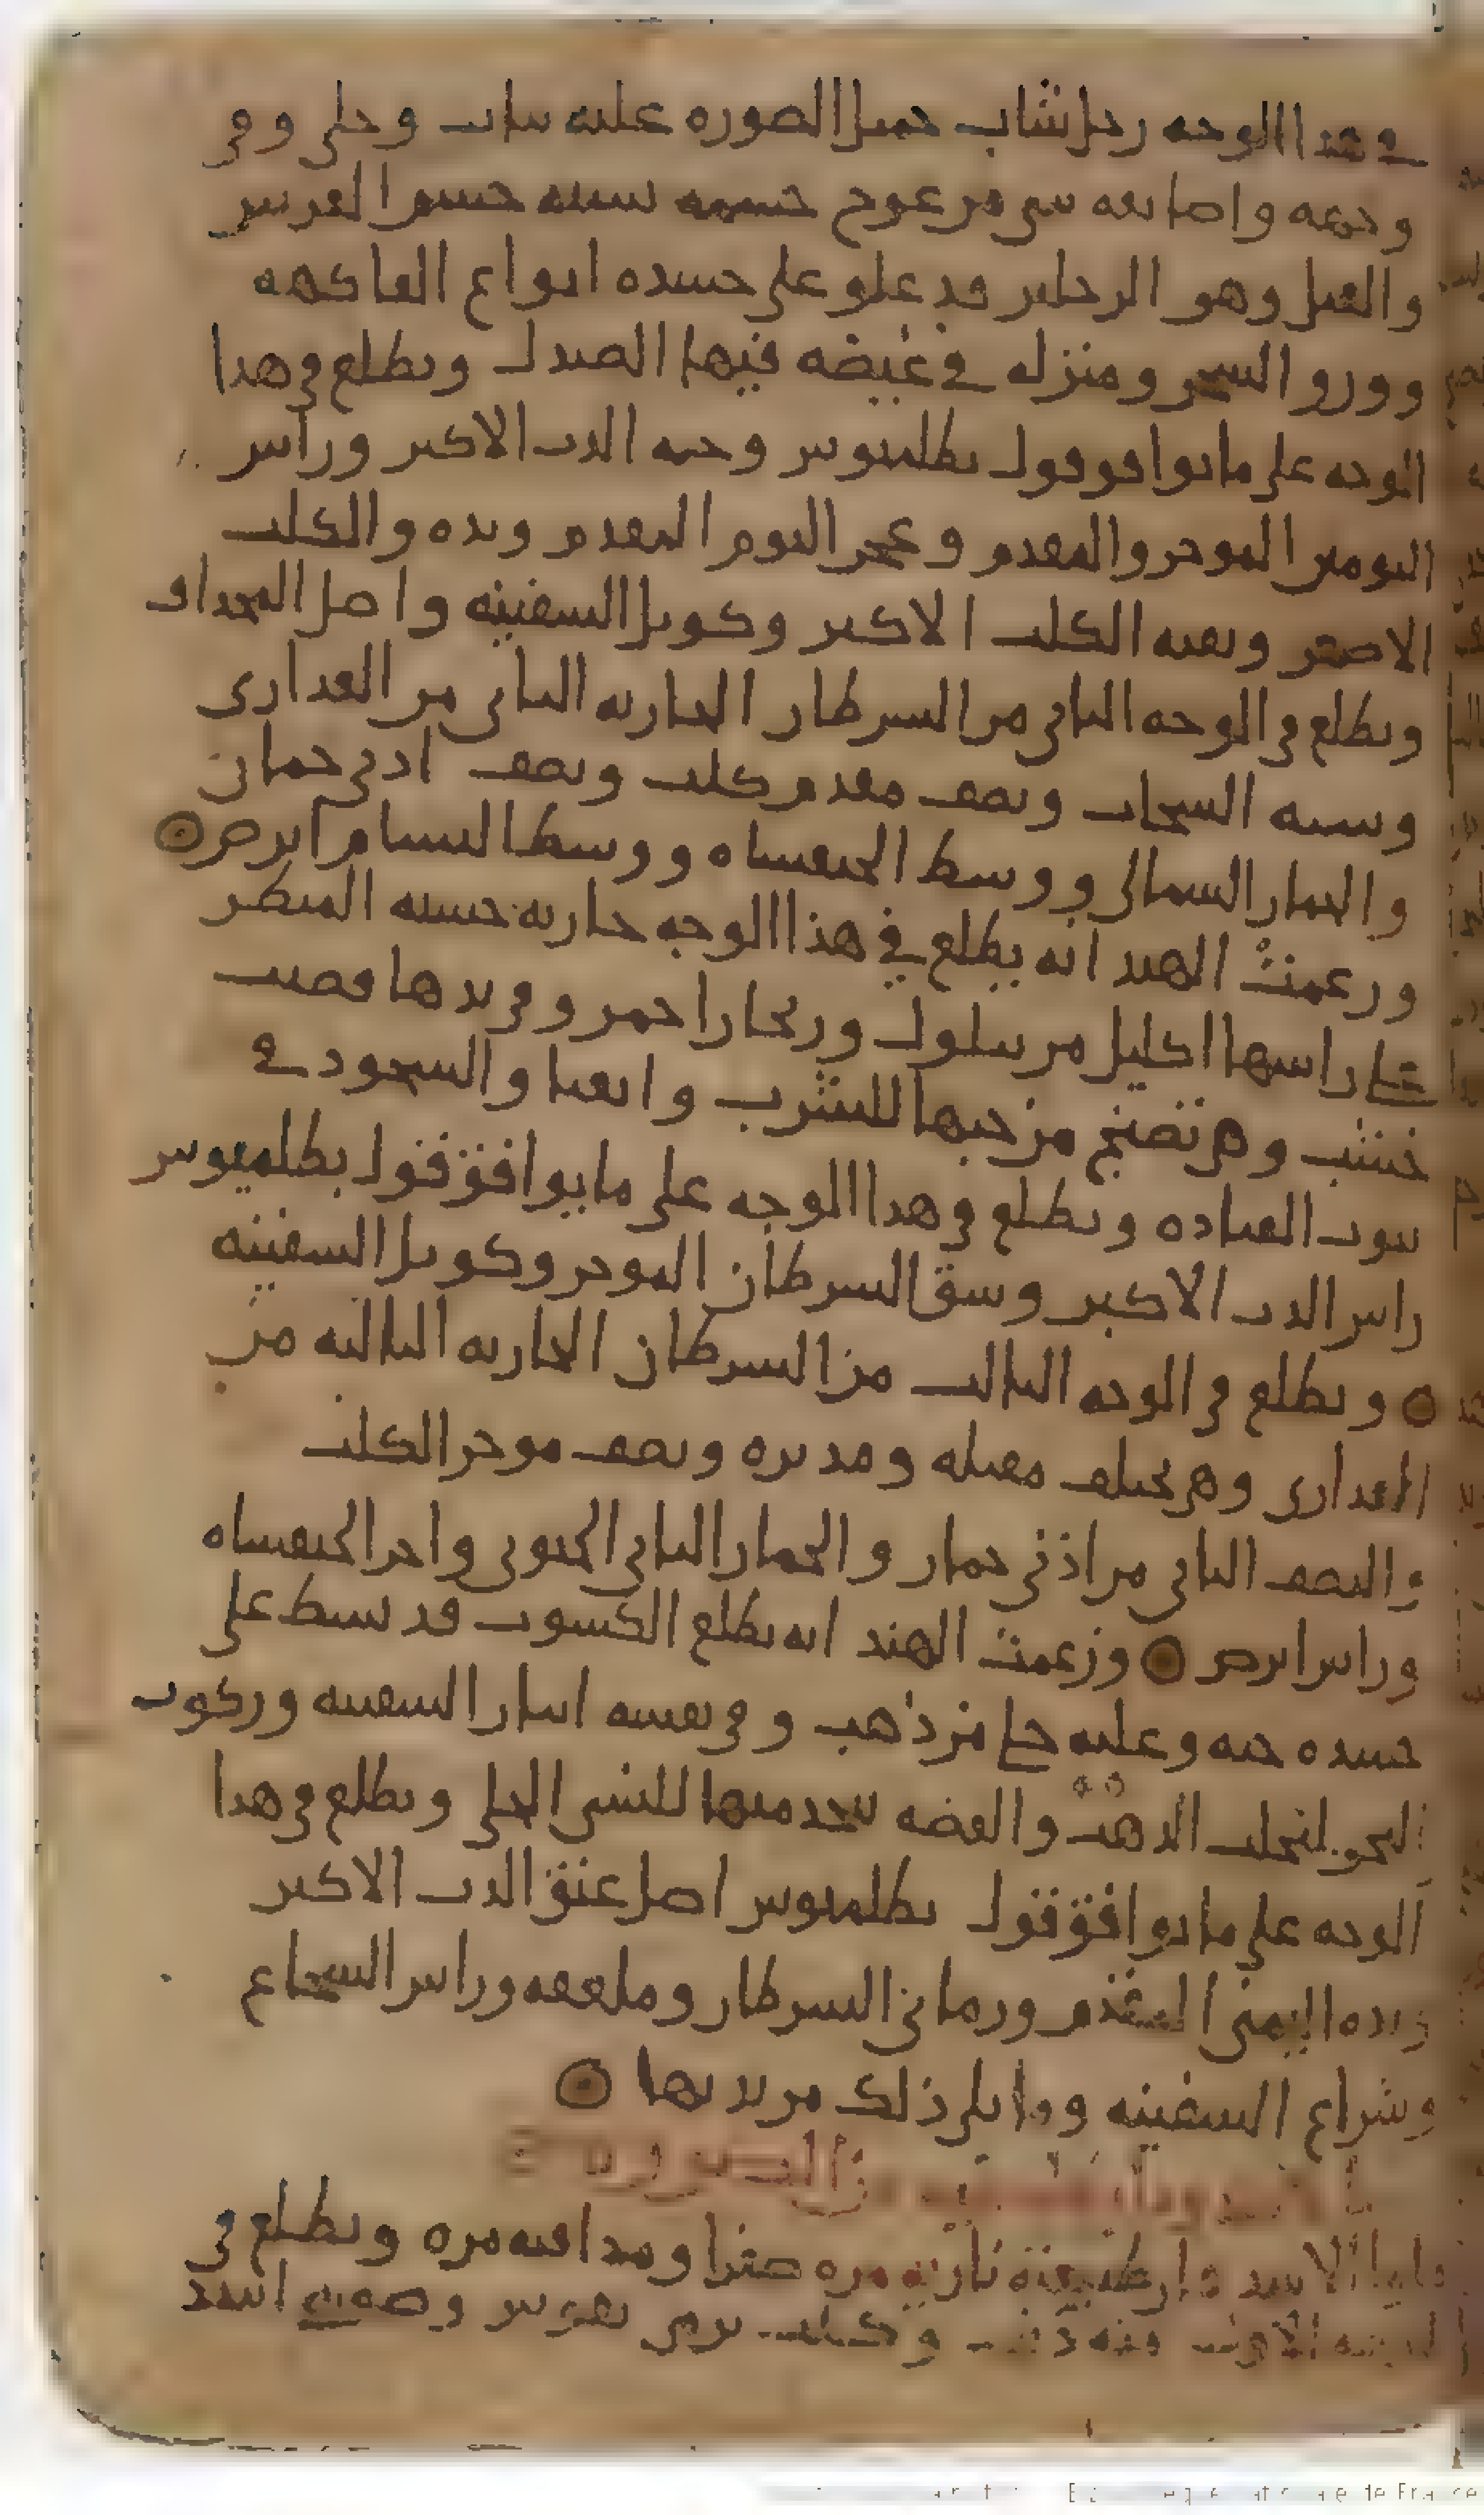 في هذا الوجه رجل شاب جميل الصوره عليه ثياب وحلي وفي
وجهه واصابعه شي من عوج جسمه يشبه جسم الفرس
والفيل وهو الرجلين قد علق على جسده انواع الفاكهه
وورق الشجر ومنزله في غيضه فيها الصندل ويطلع في هذا
الوجه على ما يوافق قول بطلميوس وجه الدب الاكبر وراس
التومين الموخر والمقدم وعجز التوم المقدم ويده والكلب
الاصغر وبقيه الكلب الاكبر وكوثل السفينه واصل المجداف
ويطلع في الوجه الثاني من السرطان الجاريه الثاني من العذارى
وشبه السحاب ونصف مقدم كلب ونصف اذني حمار
والحمار الشمالي ووسط الخنفساه ووسط السام ابرص
وزعمت الهند انه يطلع في هذا الوجه جاريه حسنه المنظر
على راسها اكليل من وريحان احمر وفي يدها قضيب
خشب وهي تصيح من حبها للشرب والغنا والسجود في
بيوت العباده ويطلع في هذا الوجه على ما يوافق قول بطلميوس
راس الدب الاكبر وشق السرطان الموخر وكوثل السفينه
ويطلع في الوجه الثالث من السرطان الجاريه الثالثه من
العذارى وهي تختلف مقبله ومدبره ونصف موخر الكلب
والنصف الثاني من اذني حمار والحمار الثاني الجنوبي واخر الخنفساه
وراس ابرص وزعمت الهند انه يطلع قد بسط على
جسده حيه وعليه حلي من ذهب وفي نفسه اتيان السفينه وركوب
البحر ليجلب الذهب والفضه ليتخذ منها للنسا الحلي ويطلع في هذا
الوجه على ما يوافق قول بطلميوس اصل عنق الدب الاكبر
ويده اليمنى المقدم السرطان وراس الشجاع
وشراع السفينه وما يلي ذلك من بدنها
الاسد طبيعته ناريه مره صفرا ومذاقته مره ويطلع في
الوجه الاول منه ذنب وكلب يرمي بقوس وصوره اسد